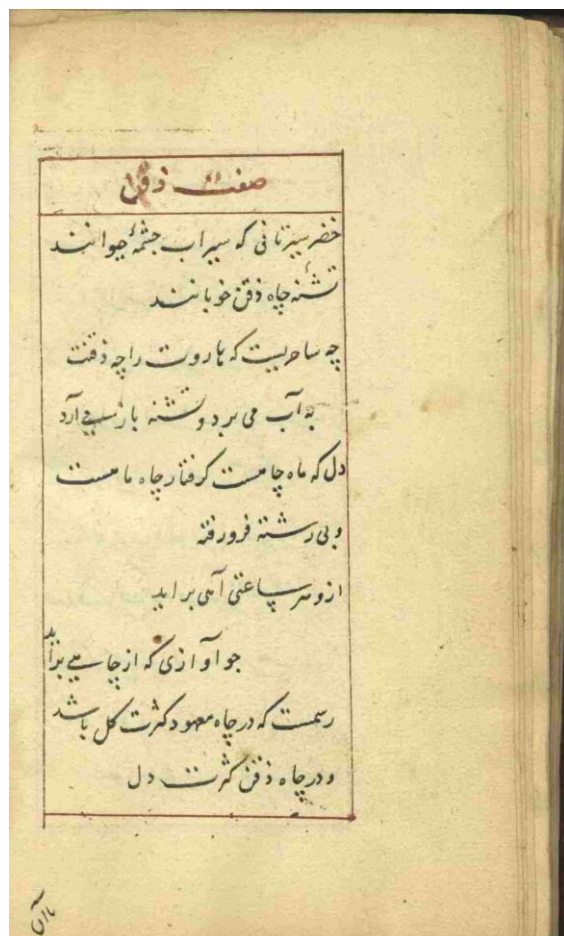 صفت ذقن
خضر سیرتانی که سیراب چشمهٔ حیوانند
تشنهٔ چاه ذقن خوبانند
چه ساحریست که هاروت را چه ذقنت
به آب می برد و تشنه باز می آرد
دل که ماه چاهست گرفتار چاه ماست
و بی رشته فرو رفته
ازو هر ساعتی آهی براید
چو آوازی که از چاهی براید
رسمست که در چاه معهود کثرت کل باشد
و در چاه ذقن کثرت دل